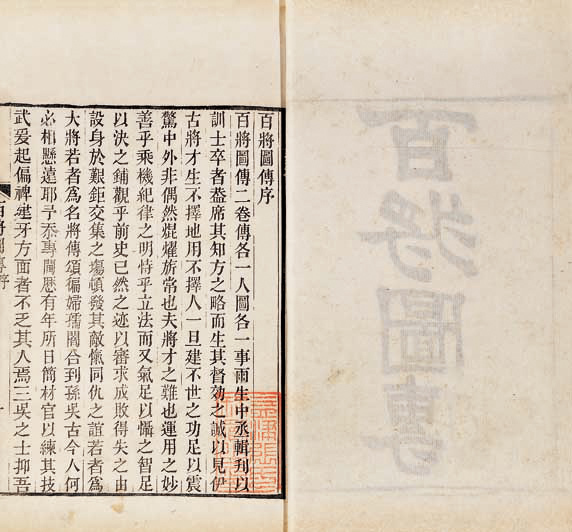 百將圖傳
百將圖傳序
百將圖傳二卷傳各一人圖各一事雨生中丞輯刊以
訓士卒者盍席其知方之略而生其督効之誠以見伊
古將才生不擇地用不擇人一旦建不世之功足以震
驚中外非偶然焜燿旂常也夫將才之難也運用之妙
善乎乘機紀律之明恃乎立法而又氣足以懾之智足
以決之鋪觀乎前史已然之迹以審求成敗得失之由
設身於艱鉅交集之塲頓發其敵愾同仇之誼若者爲
大將若者爲名將傳頌徧婦孺闇合到孫吳古今人何
必相懸遠耶予忝專閫歷有年所日簡材官以練其技
武爰起偏裨建牙方面者不乏其人焉三吳之士抑吾